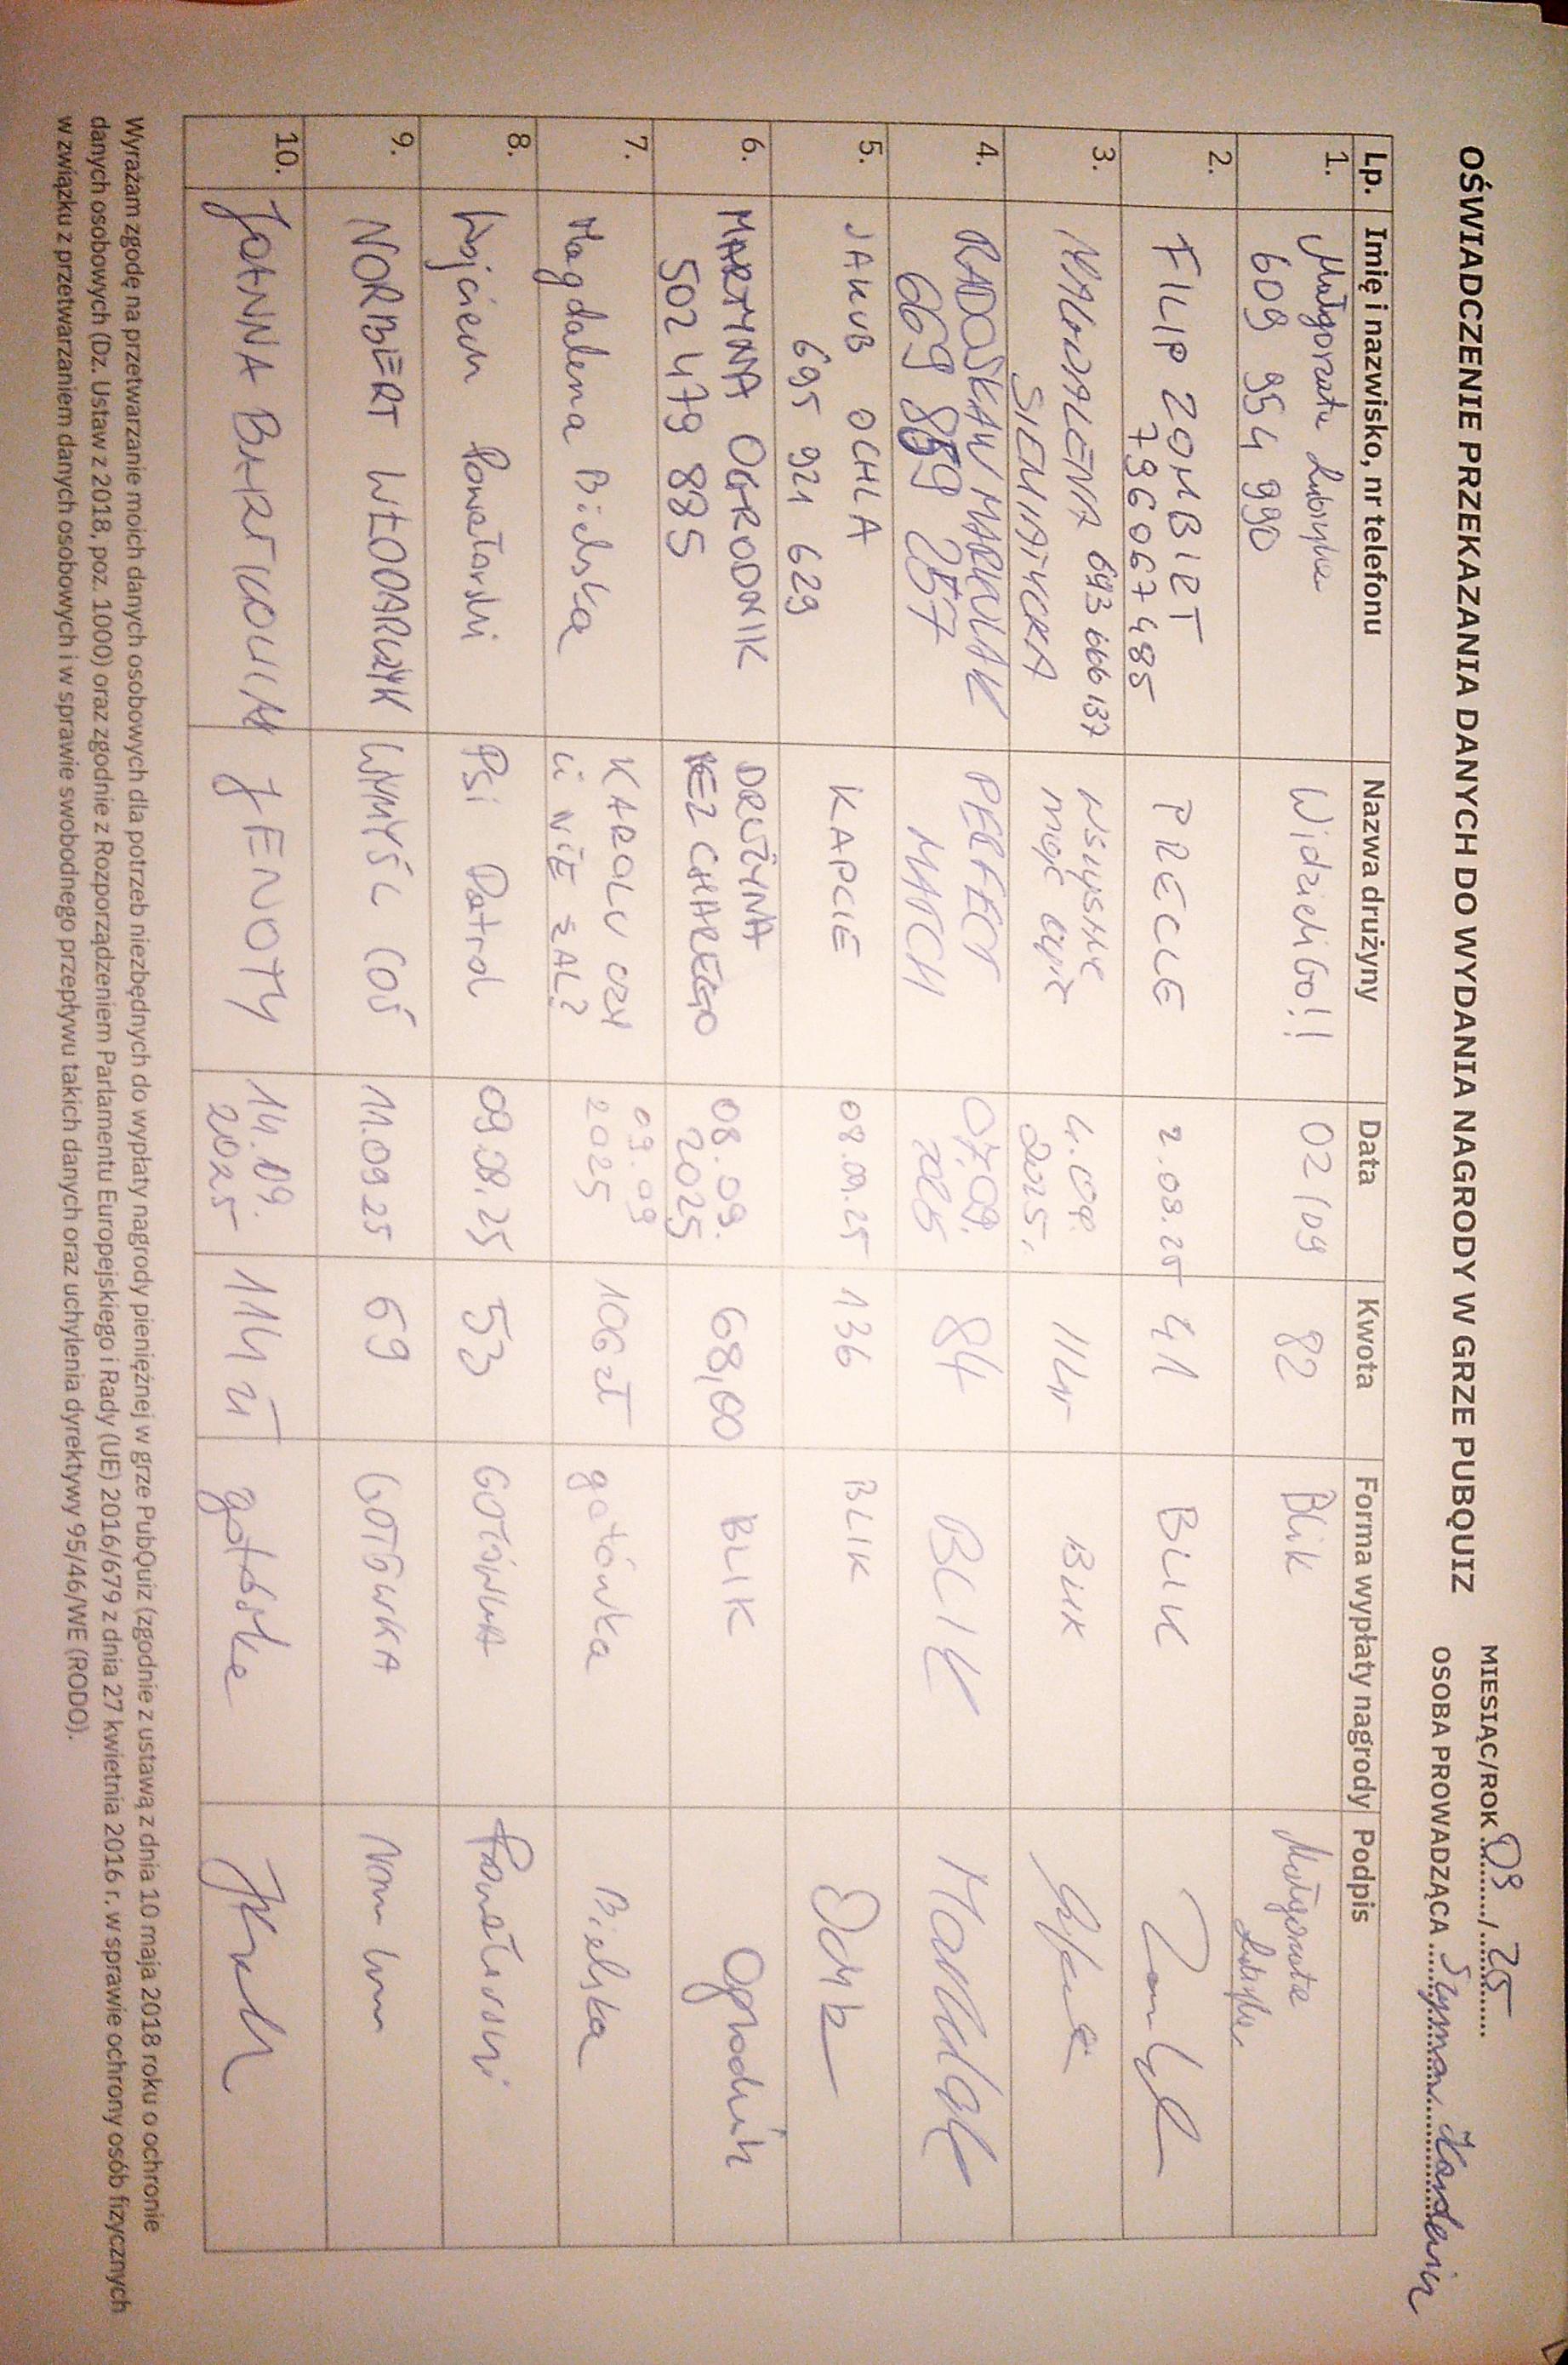 OŚWIADCZENIE PRZEKAZANIA DANYCH DO WYDANIA NAGRODY W GRZE PUBQUIZ
MIESIĄC/ROK 09 / 25
OSOBA PROWADZĄCA Szymon
Lp. Imię i nazwisko, nr telefonu Nazwa drużyny Data Kwota Forma wypłaty nagrody Podpis
1. Małgorzata Widzieli Go!! 02/09 82 Blik Małgorzata
609 954 990
2. FILIP ZOMBIRT PRECLE 2.09.25 41 BLIK
796 067 485
3. MAGDALENA 693 666 137 wszystkie 4.09. BLIK
SIEMIATYCKA moje 2025r.
4. RADOSŁAW MARKULAK PERFECT 07.09. 84 BLIK Markulak
669 859 257 MATCH 2025
5. JAKUB OCHLA KAPCIE 08.09.25 136 BLIK
695 921 629
6. MARTYNA OGRODNIK DRUŻYNA 08.09. 68,00 BLIK Ogrodnik
502 479 885 BEZ CHAREGO 2025
7. Magdalena Bielska KAROLU CZY 09.09 106 zł gotówka Bielska
CI NIE ŻAL? 2025
8. Wojciech Powałowski Psi Patrol 09.09.25 53 GOTÓWKA Powałowski
9. NORBERT WŁODARCZYK WYMYŚL COŚ 11.09 25 69 GOTÓWKA
10. JOANNA JENOTY 14.09. 114 zł gotówka
2025
Wyrażam zgodę na przetwarzanie moich danych osobowych dla potrzeb niezbędnych do wypłaty nagrody pieniężnej w grze PubQuiz (zgodnie z ustawą z dnia 10 maja 2018 roku o ochronie
danych osobowych (Dz. Ustaw z 2018, poz. 1000) oraz zgodnie z Rozporządzeniem Parlamentu Europejskiego i Rady (UE) 2016/679 z dnia 27 kwietnia 2016 r. w sprawie ochrony osób fizycznych
w związku z przetwarzaniem danych osobowych i w sprawie swobodnego przepływu takich danych oraz uchylenia dyrektywy 95/46/WE (RODO).